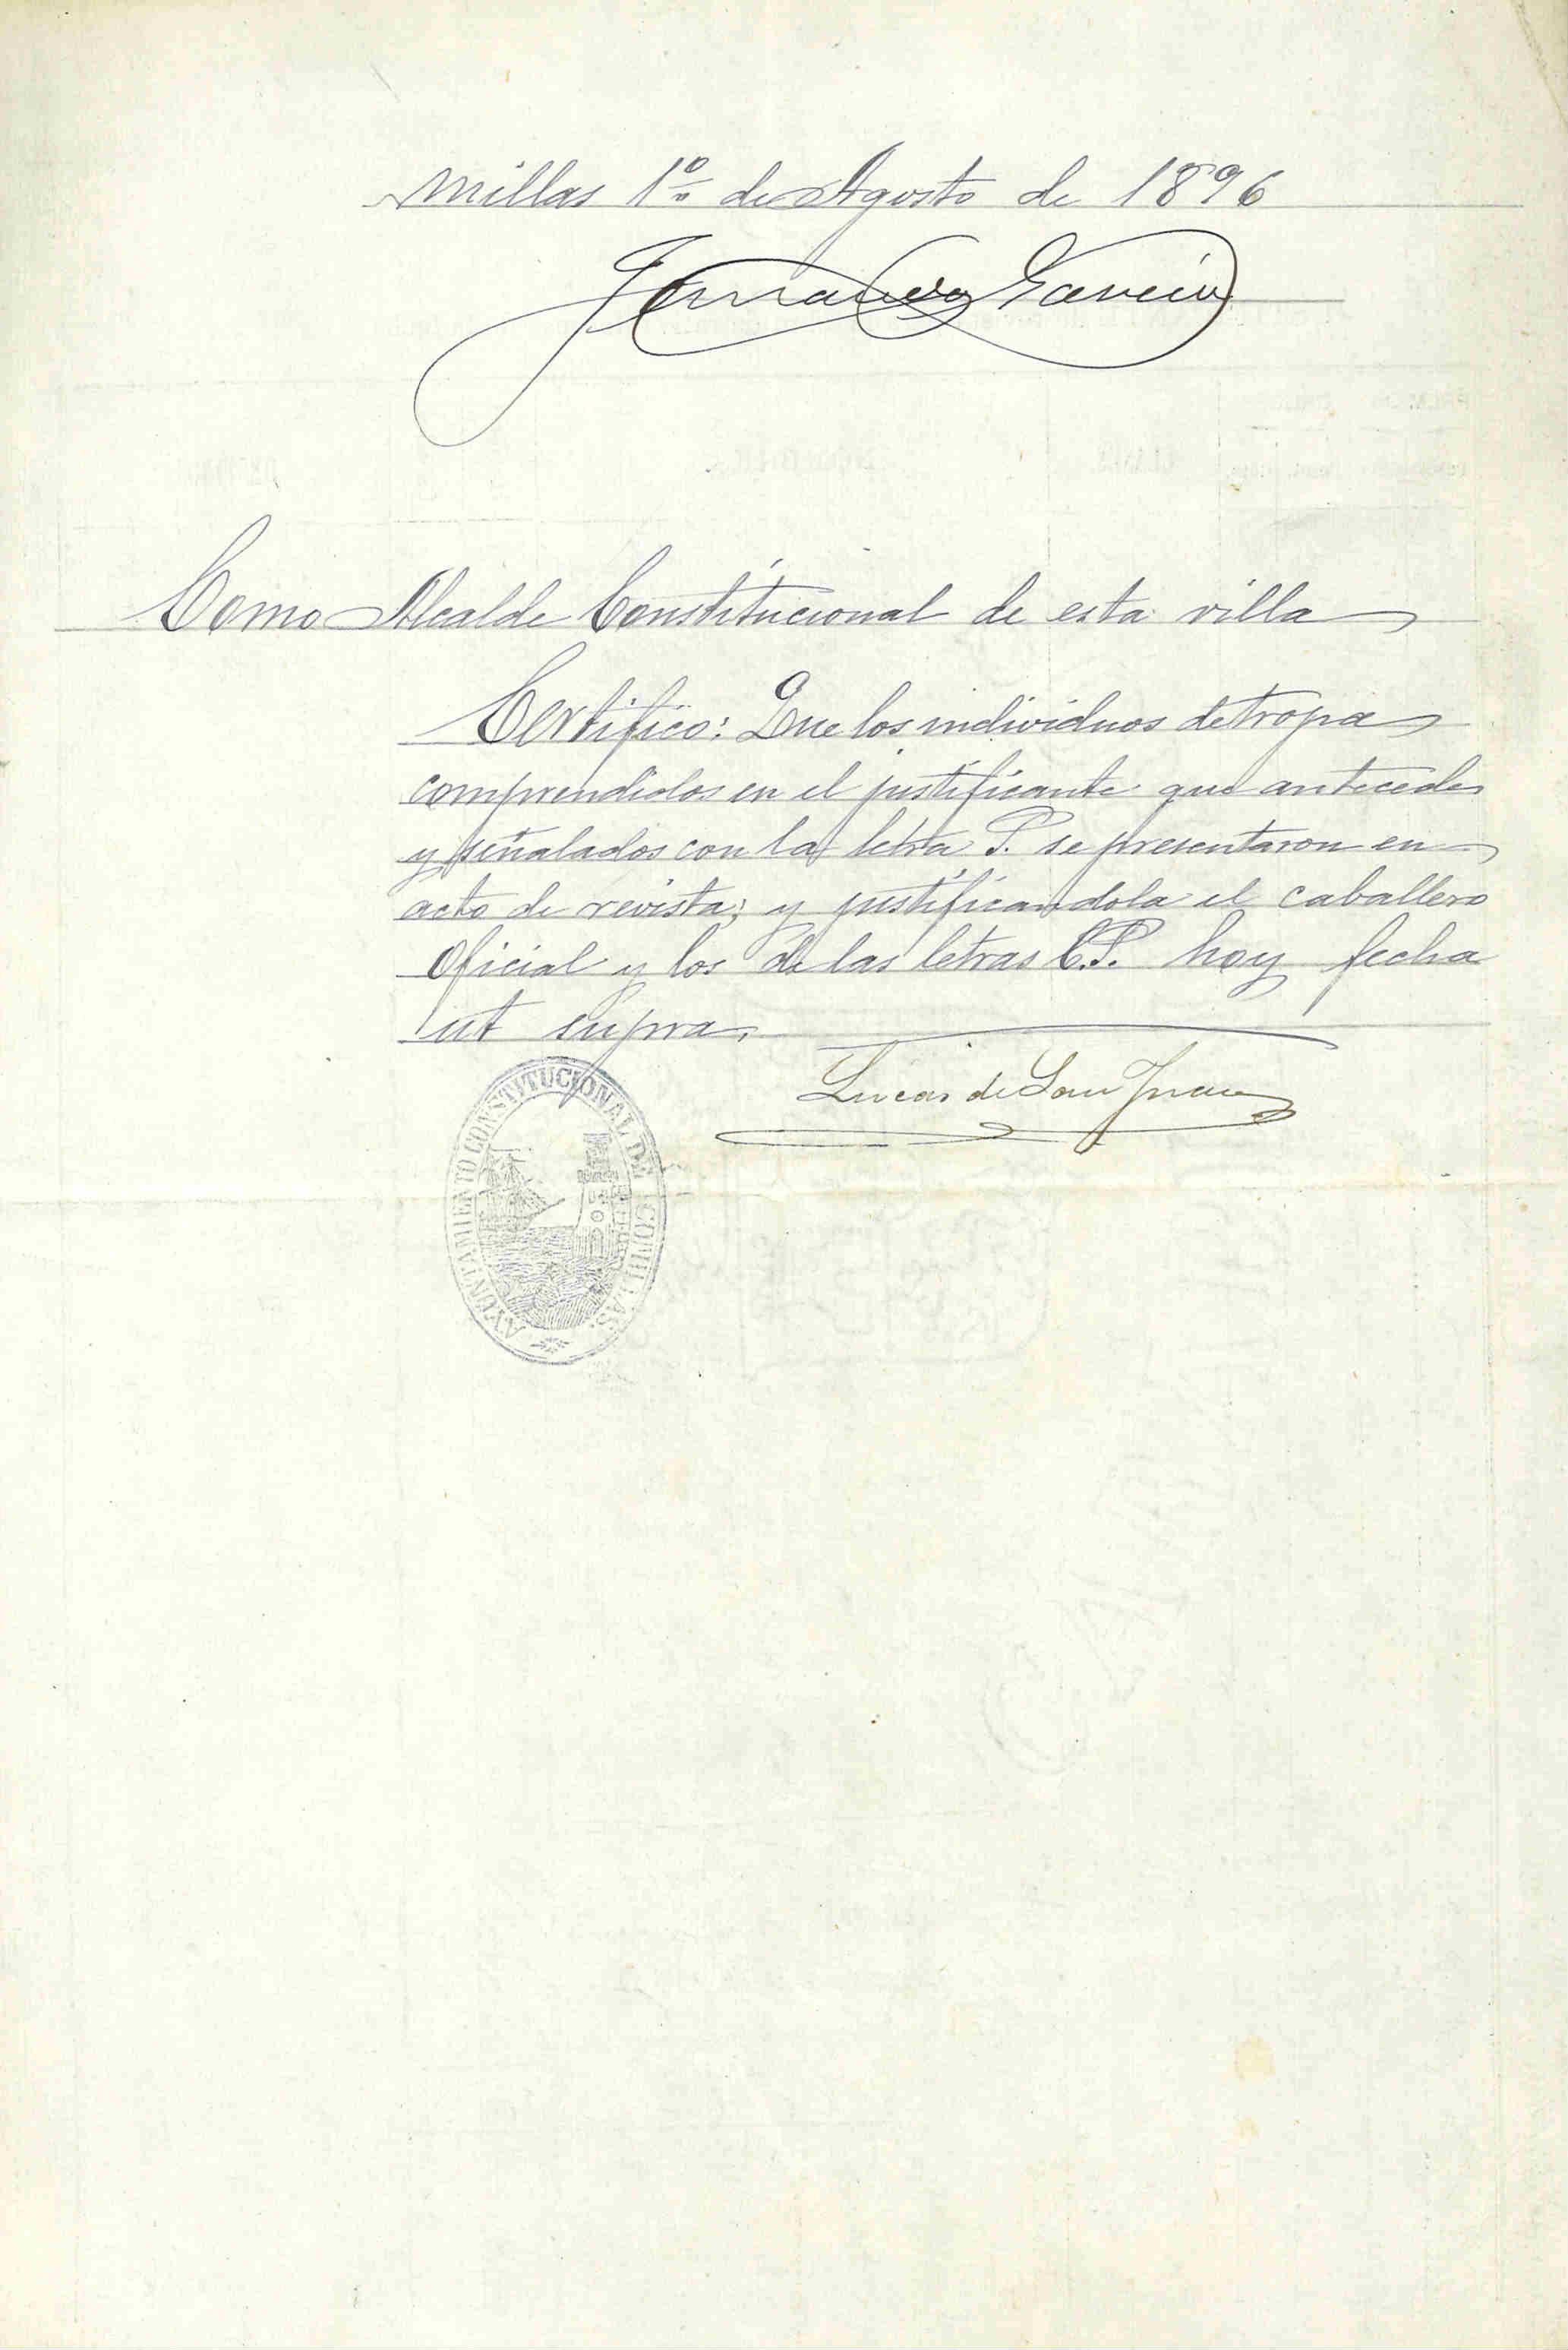 millas 1º de Agosto de 1896
Fernando García
Como Alcalde Constitucional de esta villa
Certifico: Que los individuos de tropa
comprendidos en el justificante que antecede
y señalados con la letra P. se presentaron en
acto de revista; y justificandola el caballero
Oficial y los de las letras C.P. hoy fecha
ut supra.
Lucas de San Juan
AYUNTAMIENTO CONSTITUCIONAL DE COMILLAS